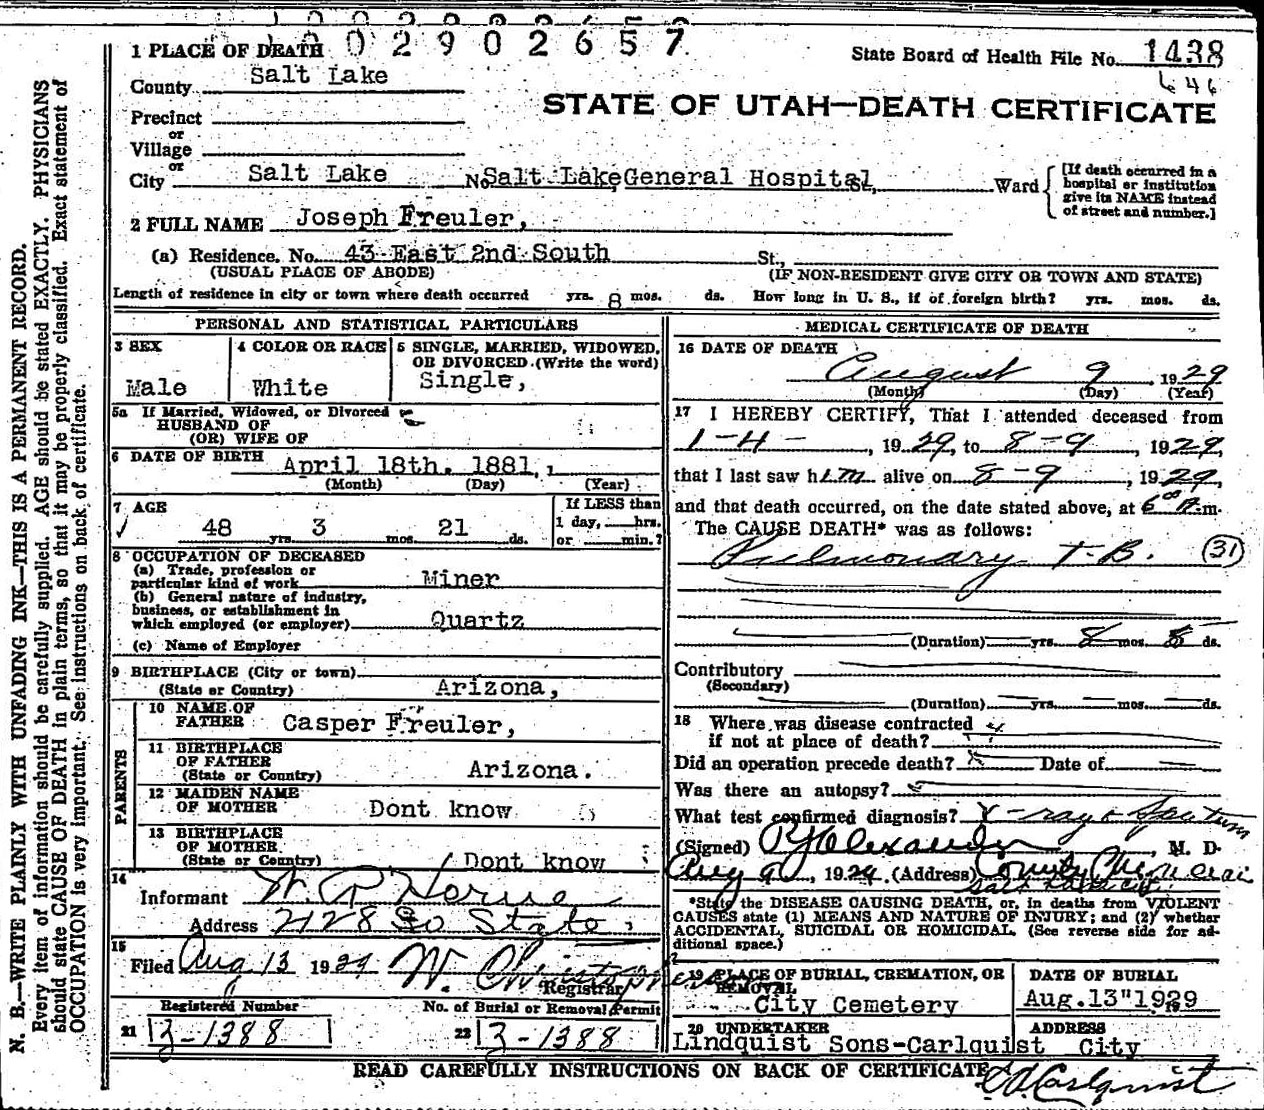 0 0 2 9 0 2 6 5 7
1 PLACE OF DEATH
State Board of Health File No. 1438
County Salt Lake
646
STATE OF UTAH—DEATH CERTIFICATE
Precinct
or
Village
or
City Salt Lake No. Salt Lake General Hospital St., Ward
[If death occurred in a
hospital or institution
give its NAME instead
of street and number.]
2 FULL NAME Joseph Freuler,
(a) Residence. No. 43 East 2nd South St.,
(USUAL PLACE OF ABODE) (IF NON-RESIDENT GIVE CITY OR TOWN AND STATE)
Length of residence in city or town where death occurred yrs. 8 mos. ds. How long in U. S., if of foreign birth? yrs. mos. ds.
PERSONAL AND STATISTICAL PARTICULARS
3 SEX
Male
4 COLOR OR RACE
White
5 SINGLE, MARRIED, WIDOWED,
OR DIVORCED (Write the word)
Single,
5a If Married, Widowed, or Divorced
HUSBAND OF
(OR) WIFE OF
6 DATE OF BIRTH April 18th. 1881,
(Month) (Day) (Year)
7 AGE
48 yrs. 3 mos. 21 ds.
If LESS than
1 day, hrs.
or min.?
8 OCCUPATION OF DECEASED
(a) Trade, profession or
particular kind of work Miner
(b) General nature of industry,
business, or establishment in
which employed (or employer) Quartz
(c) Name of Employer
9 BIRTHPLACE (City or town)
(State or Country) Arizona,
PARENTS
10 NAME OF
FATHER Casper Freuler,
11 BIRTHPLACE
OF FATHER
(State or Country) Arizona.
12 MAIDEN NAME
OF MOTHER Dont know
13 BIRTHPLACE
OF MOTHER
(State or Country) Dont know
14
Informant W. P. Horne
Address 2128 So State
15
Filed Aug 13 1929 W. Christopherson
Registrar
Registered Number No. of Burial or Removal Permit
21 3-1388 22 3-1388
MEDICAL CERTIFICATE OF DEATH
16 DATE OF DEATH
August 9, 1929
(Month) (Day) (Year)
17 I HEREBY CERTIFY, That I attended deceased from
1-4-, 1929, to 8-9, 1929,
that I last saw him alive on 8-9, 1929,
and that death occurred, on the date stated above, at 6 00 A.m.
The CAUSE DEATH* was as follows:
Pulmonary T.B. (31)
(Duration) yrs. 8 mos. 5 ds.
Contributory
(Secondary)
(Duration) yrs. mos. ds.
18 Where was disease contracted
if not at place of death?
Did an operation precede death? Date of
Was there an autopsy?
What test confirmed diagnosis? X-ray & Sputum
(Signed) Alexander, M. D.
Aug 9, 1929 (Address) County
Salt Lake City
*State the DISEASE CAUSING DEATH, or, in deaths from VIOLENT
CAUSES state (1) MEANS AND NATURE OF INJURY; and (2) whether
ACCIDENTAL, SUICIDAL OR HOMICIDAL. (See reverse side for ad-
ditional space.)
19 PLACE OF BURIAL, CREMATION, OR
REMOVAL
City Cemetery
DATE OF BURIAL
Aug. 13" 1929
19
20 UNDERTAKER
Lindquist Sons-Carlquist
ADDRESS
City
READ CAREFULLY INSTRUCTIONS ON BACK OF CERTIFICATE
Carlquist
N. B.—WRITE PLAINLY WITH UNFADING INK—THIS IS A PERMANENT RECORD.
Every item of information should be carefully supplied. AGE should be stated EXACTLY. PHYSICIANS
should state CAUSE OF DEATH in plain terms, so that it may be properly classified. Exact statement of
OCCUPATION is very important. See instructions on back of certificate.